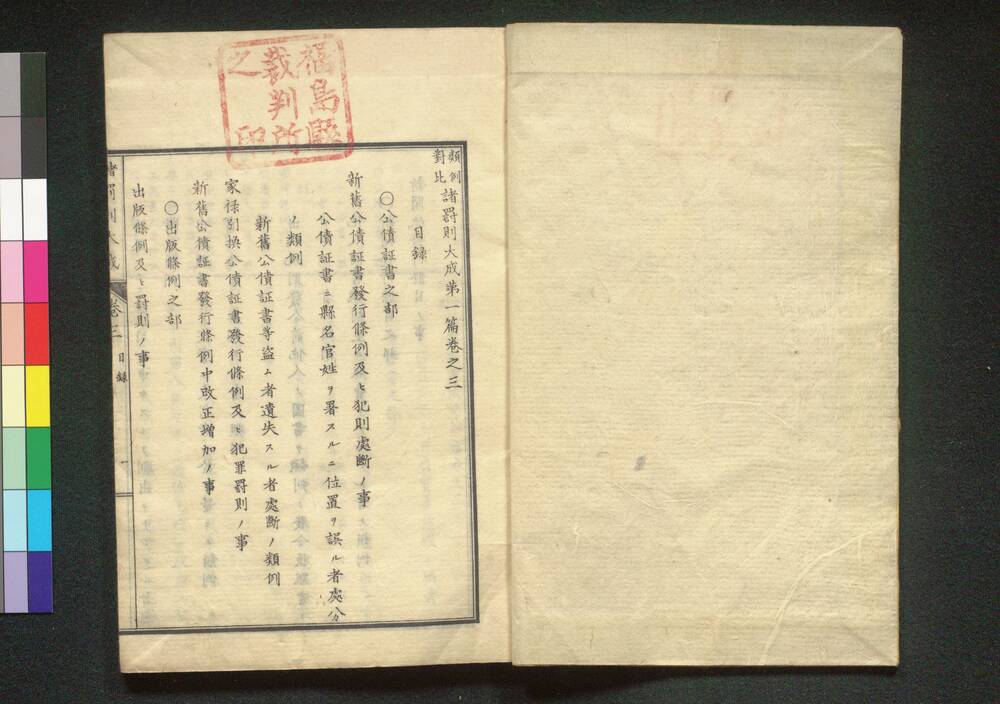 福島縣
裁判所
之印
類例
對比
諸罰則大成第一篇卷之三
目録
〇公債証書之部
新舊公債証書發行條例及ヒ犯則處斷ノ事
公債証書ニ縣名官姓ヲ署スルニ位置ヲ誤ル者處分
類例
新舊公債証書等盗ム者遺失スル者處斷ノ類例
家禄引換公債証書發行條例及ヒ犯罪罰則ノ事
新舊公債証書發行條例中改正増加ノ事
〇出版條例之部
出版條例及ヒ罰則ノ事
卷三
目録
一